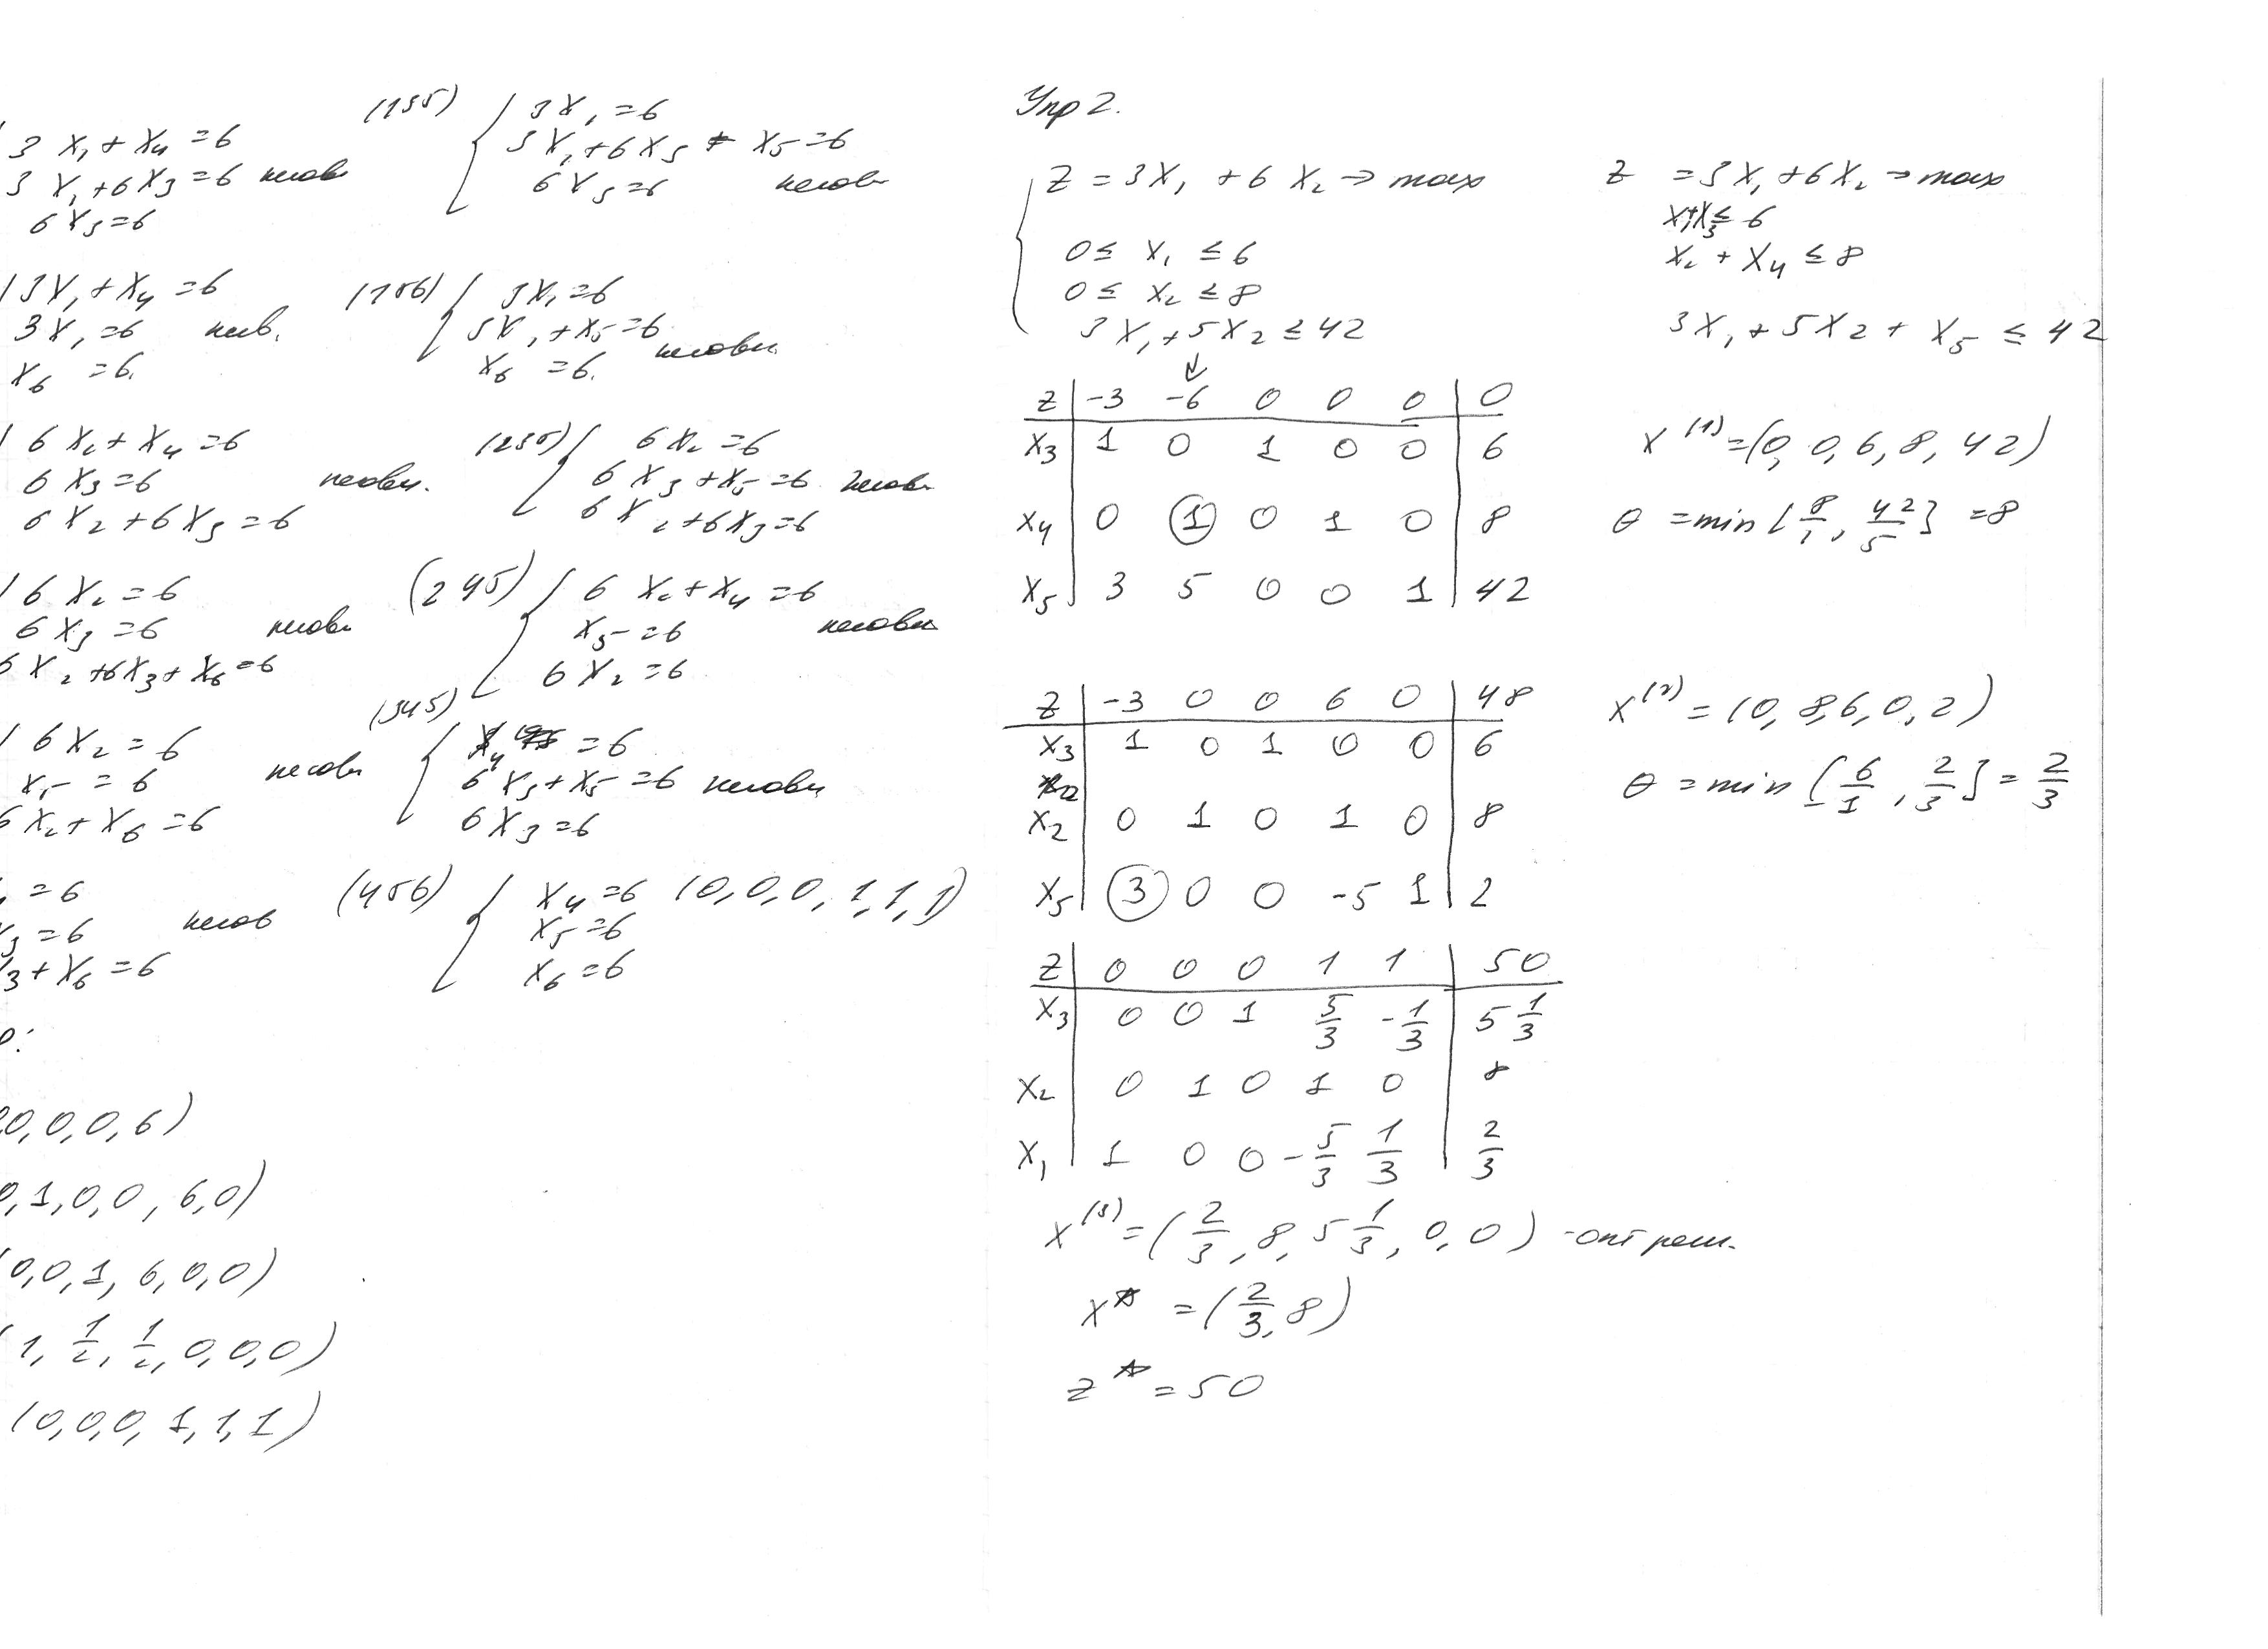 3x₁ + x₄ = 6
3x₁ + 6x₃ = 6 несовм
6x₃ = 6
(135)
3x₁ = 6
3x₁ + 6x₃ + x₅ = 6
6x₃ = 6 несовм
3x₁ + x₄ = 6
3x₁ = 6
x₆ = 6.
(156)
3x₁ = 6
3x₁ + x₅ = 6
x₆ = 6. несовм.
6x₂ + x₄ = 6
6x₃ = 6 несовм.
6x₂ + 6x₃ = 6
(235)
6x₂ = 6
6x₃ + x₅ = 6 несовм
6x₂ + 6x₃ = 6
6x₂ = 6
6x₃ = 6 несовм
6x₂ + 6x₃ + x₆ = 6
(245)
6x₂ + x₄ = 6
x₅ = 6 несовм
6x₂ = 6
6x₂ = 6
x₅ = 6 несовм
6x₂ + x₆ = 6
(345)
x₄ = 6
6x₃ + x₅ = 6 несовм
6x₃ = 6
= 6
x₃ = 6 несов
x₃ + x₆ = 6
(456)
x₄ = 6 (0, 0, 0, 1, 1, 1)
x₅ = 6
x₆ = 6
0, 0, 0, 6)
, 1, 0, 0, 6, 0)
0, 0, 1, 6, 0, 0)
(1, 1/2, 1/2, 0, 0, 0)
(0, 0, 0, 1, 1, 1)
Упр 2.
z = 3x₁ + 6x₂ → max
0 ≤ x₁ ≤ 6
0 ≤ x₂ ≤ 8
3x₁ + 5x₂ ≤ 42
z = 3x₁ + 6x₂ → max
x₁ + x₃ ≤ 6
x₂ + x₄ ≤ 8
3x₁ + 5x₂ + x₅ ≤ 42
z -3 -6 0 0 0 0
x₃ 1 0 1 0 0 6
x₄ 0 1 0 1 0 8
x₅ 3 5 0 0 1 42
x⁽¹⁾ = (0, 0, 6, 8, 42)
θ = min [8/1, 42/5] = 8
z -3 0 0 6 0 48
x₃ 1 0 1 0 0 6
x₂ 0 1 0 1 0 8
x₅ 3 0 0 -5 1 2
x⁽²⁾ = (0, 8, 6, 0, 2)
θ = min [6/1, 2/3] = 2/3
z 0 0 0 1 1 50
x₃ 0 0 1 5/3 -1/3 5 1/3
x₂ 0 1 0 1 0 8
x₁ 1 0 0 -5/3 1/3 2/3
x⁽³⁾ = (2/3, 8, 5 1/3, 0, 0) - опт реш.
x* = (2/3, 8)
z* = 50